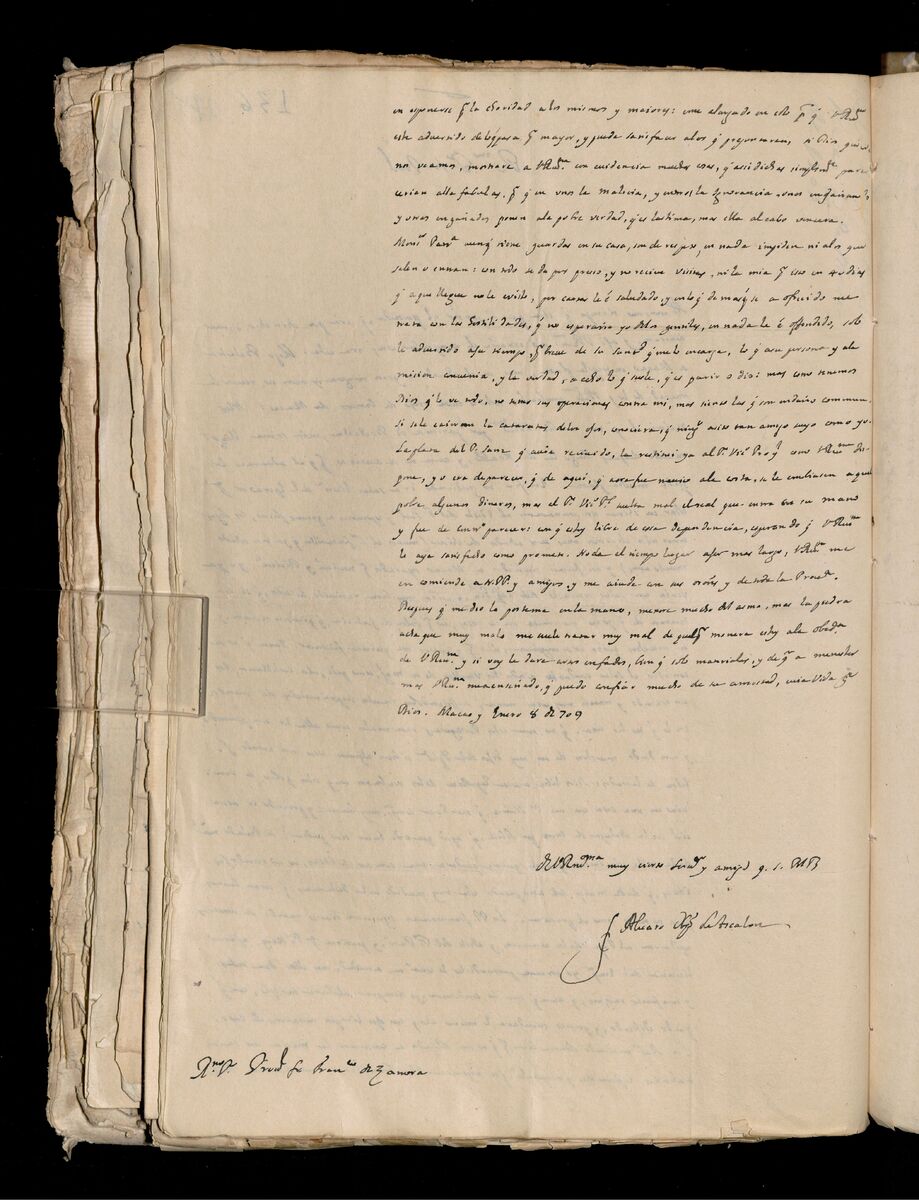 en exponerse p.r la charidad a los mismos y maiores: me e largado en esto p.r q̃ VR.ma
este advertido de lo q̃ passa p.r mayor, y pueda satisfacer a los q̃ preguntaren, si Dios quiere
nos veamos, mostrare a VRm.a con evidencia muchas cosas, q̃ assi dichas simplem.te pare
cerian alla fabulas. p.r q̃ en unos la malicia, y en otros la ignorancia unos engañando
y otros engañados ponen a la pobre verdad, q̃ es lastima, mas ella al cabo vencera.
Mons.r Patr.a aunq̃ tiene guardas en su casa, son de respeto, en nada impiden ni a los que
salen o entran: con todo se da por preso, y no recive visitas, ni la mia p.r esso en dias
q̃ a que llegue no le e visto, por cartas le é saludado, y en lo q̃ de mas se a ofrecido me
trata con las hostilidades, q̃ no esperaria yo de los gentiles, en nada le é offendido, solo
le e advertido a su tiempo, p.r breve de su Sant.d q̃ me lo encarga, lo q̃ a su persona y a la
mision convenia, y la verdad, a echo lo q̃ suele, q̃ es parir odio: mas como tenemos
Dios q̃ lo ve todo, no temo sus operaciones contra mi, mas siento las q̃ son en daño comun.
Si se le caieran las cataratas de los ojos, conociera, q̃ ning.o a sido tan amigo suyo como yo.
La plata del P. Sanz q̃ avia recivido, la restitui ya al P.e Vic.o Pro.l como VRm.a dis-
pone, y yo era de parecer, q̃ de aqui, q̃ aora fue navio a la costa, se le embiasen a aquel
pobre algunos dineros, mas el P.e Vic.o P.l suelta mal el real que entra en su mano
y fue de contr.o parecer: con q̃ estoy libre de essa dependencia, esperando q̃ VRm.a
lo aya satisfecho como promete. No da el tiempo lugar a ser mas largo, VRm.a me
encomiende a N. PP. y amigos, y me aiude con sus oraō.s y de toda la Prov.a
Despues q̃ me dio la postema en la mano, menore mucho del asma, mas la piedra
acta que muy malo me suele tratar muy mal de qualq.r manera estoy a la obed.a
de VRm.a y si voy le dare arto enfados, aunq̃ solo manuales, y de q.n a menester
mas VRm.a me a enseñado, q̃ puedo confiar mucho de su amistad, cuia vida g.e
Dios. Macao y Enero 8 de 709
de VRnd.ma muy cierto Serv.or y amigo q. s. M B
Alvaro Ob.po de Ascalon
R.mo P.e Prov.l fr Fran.co de Zamora